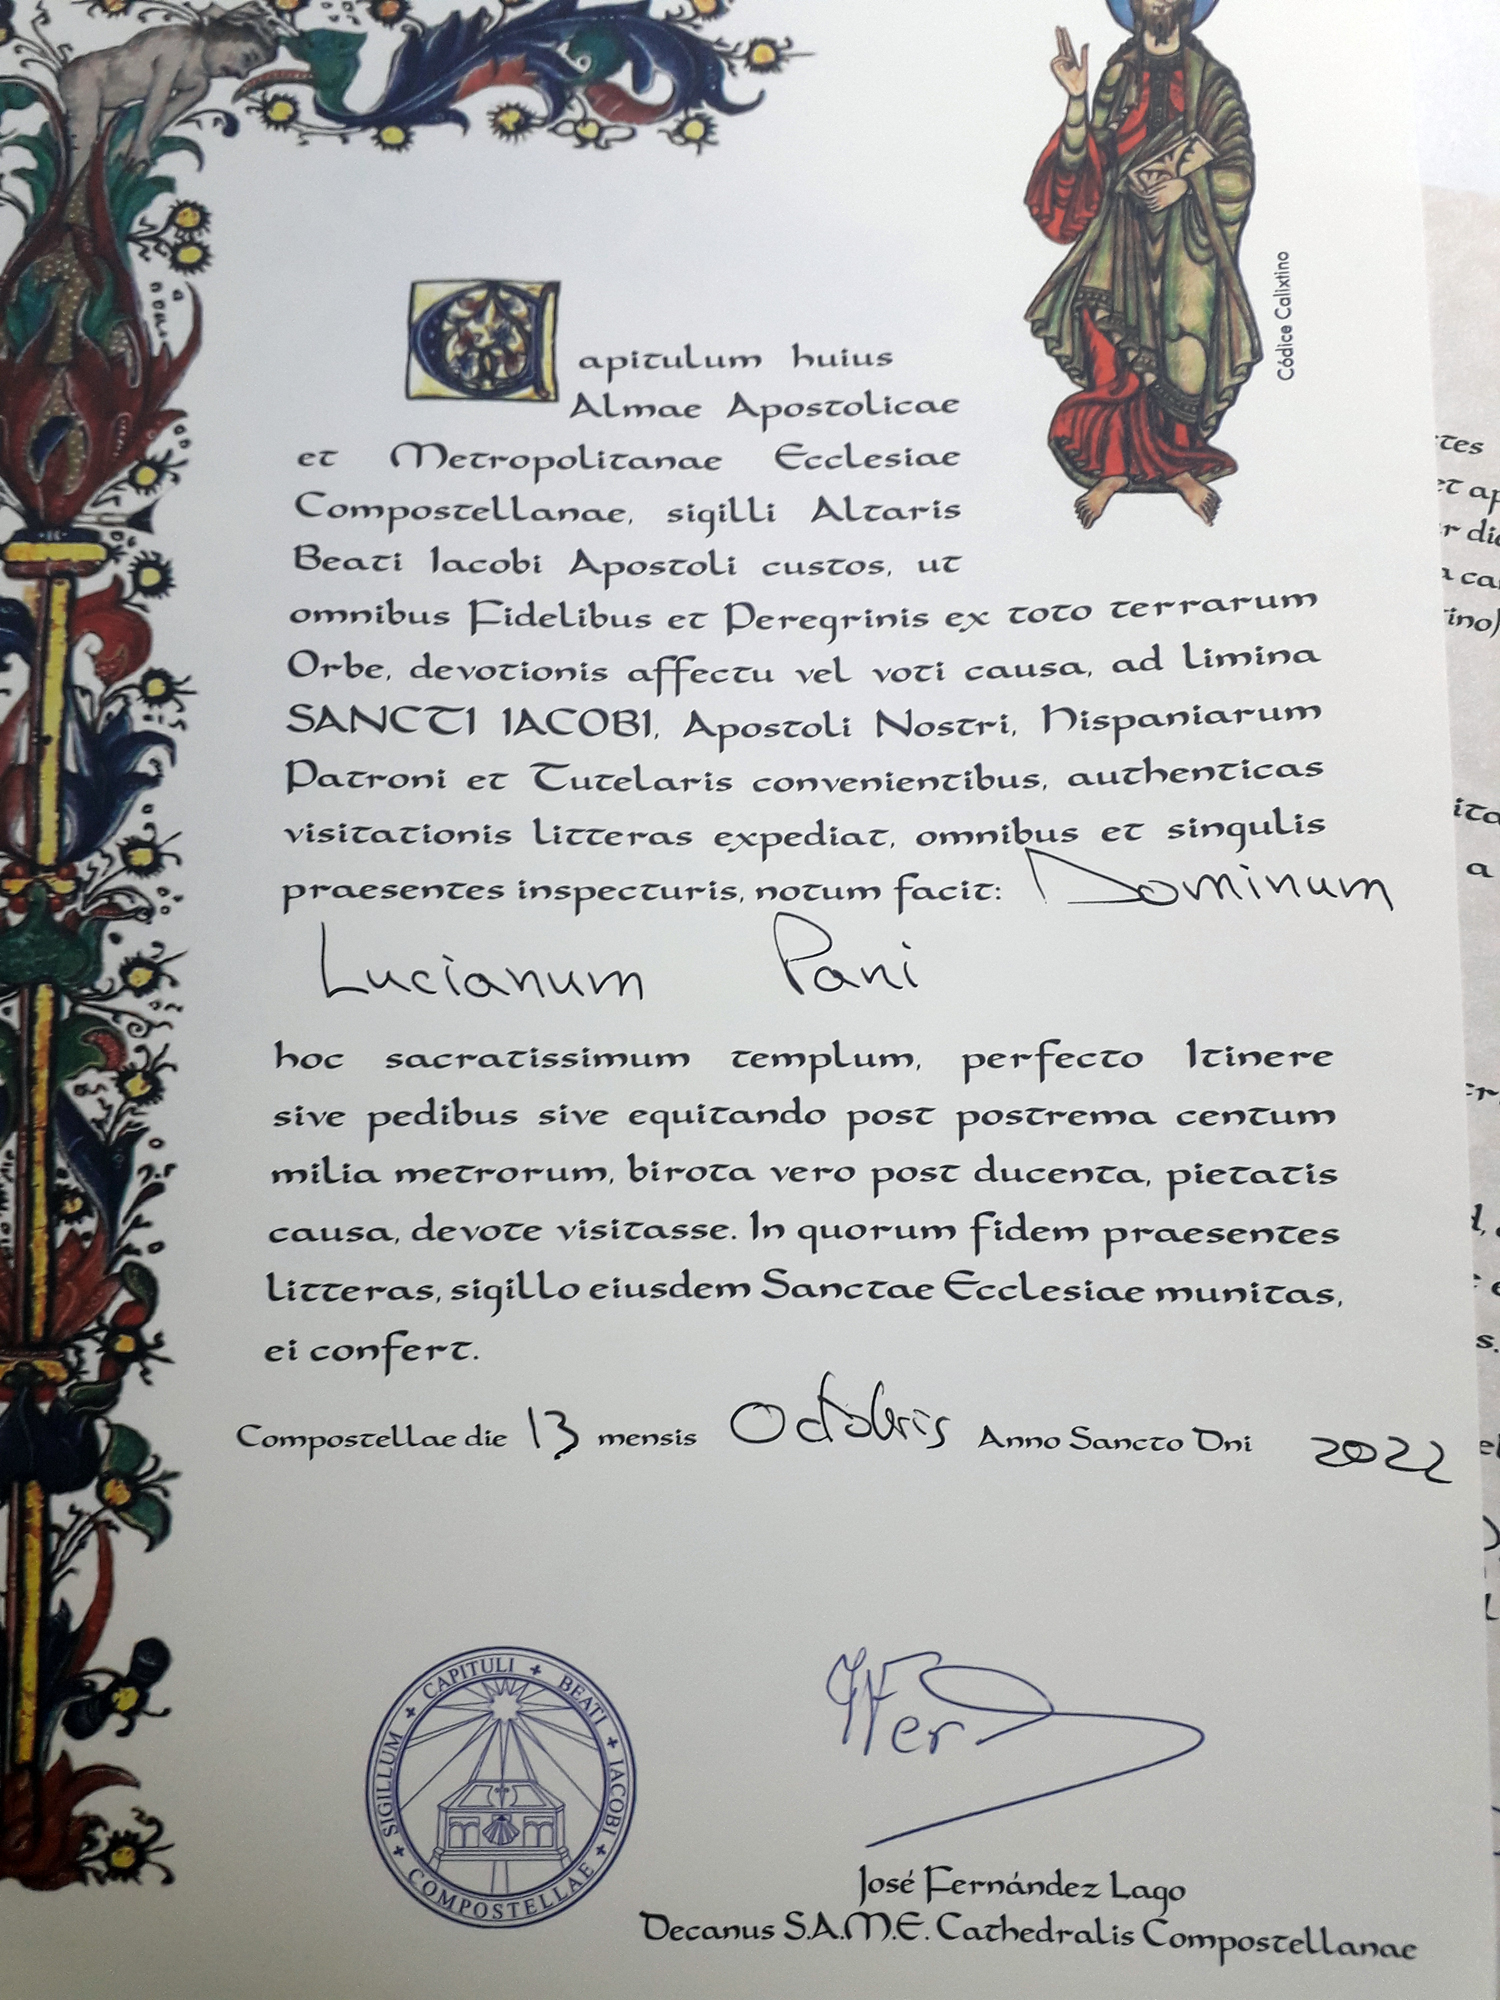 Capitulum huius
Almae Apostolicae
et Metropolitanae Ecclesiae
Compostellanae, sigilli Altaris
Beati Iacobi Apostoli custos, ut
omnibus Fidelibus et Peregrinis ex toto terrarum
Orbe, devotionis affectu vel voti causa, ad limina
SANCTI IACOBI, Apostoli Nostri, Hispaniarum
Patroni et Tutelaris convenientibus, authenticas
visitationis litteras expediat, omnibus et singulis
praesentes inspecturis, notum facit: Dominum
Lucianum Pani
hoc sacratissimum templum, perfecto Itinere
sive pedibus sive equitando post postrema centum
milia metrorum, birota vero post ducenta, pietatis
causa, devote visitasse. In quorum fidem praesentes
litteras, sigillo eiusdem Sanctae Ecclesiae munitas,
ei confert.
Compostellae die 13 mensis Octobris Anno Sancto Dni 2022
Códice Calixtino
SIGILLUM + CAPITULI + BEATI + IACOBI + COMPOSTELLAE +
José Fernández Lago
Decanus S.A.M.E. Cathedralis Compostellanae